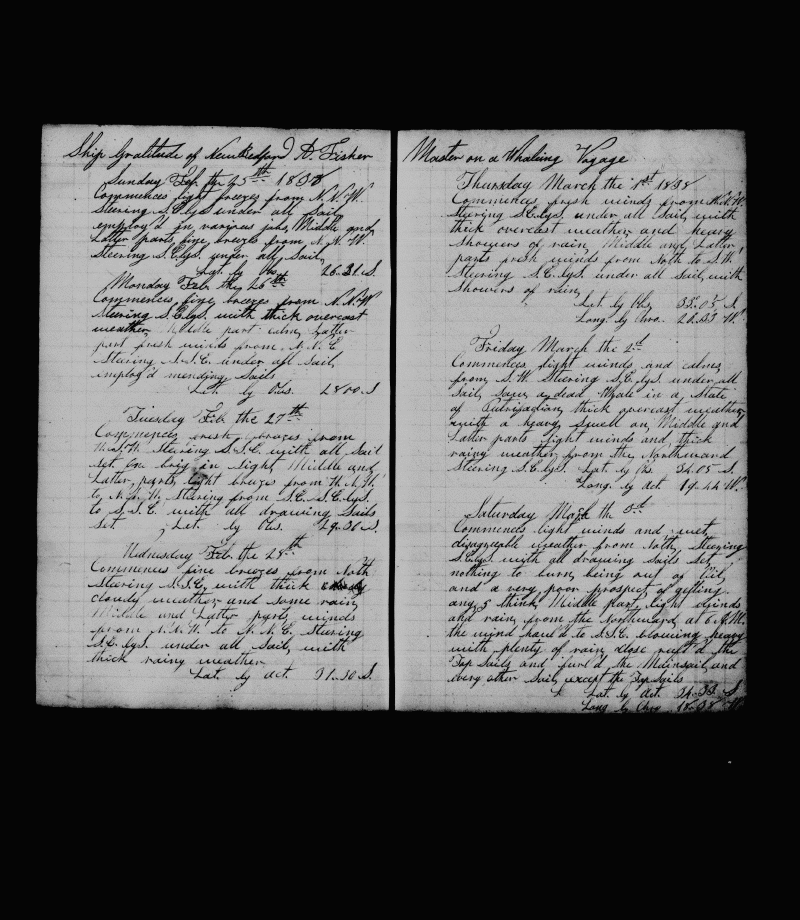 Ship Gratitude of New Bedford A. Fisher
Sunday Feb. the 25th 1838
Commences light breezes from N.N.W.
Steering S.E.lys under all Sail,
employ'd in various jobs, Middle and
Latter parts, fine breezes from N.N.W.
Steering S.E.lys. under all Sail,
Lat. by Obs. 26..31. S.
Monday Feb. the 26th
Commences, fine breezes from N.N.W
Steering S.E.lys. with thick overcast
weather, Middle part calm, Latter
part fresh winds from N.N.E.
Steering S.S.E. under all Sail,
employ'd mending Sails
Lat. by Obs. 28..00. S
Tuesday Feb. the 27th
Commences fresh breezes from
Steering S.S.E. with all Sail
set. One brig in sight, Middle and
Latter, parts, light breezes from
to, Steering from S.E. S.E.lys.
to S.S.E. with all drawing Sails
Set, Lat. by Obs. 29..30. S.
Wednesday Feb. the 28th
Commences fine breezes from North
Steering S.S.E. with thick
cloudy weather, and some rain,
Middle and Latter parts, winds
from N.N.W. to N.N.E. Steering
S.E. lys. under all Sail, with
thick rainy weather
Lat. by act. 31..30 S.
Master on a Whaling Voyage
Thursday March the 1st 1838
Commences, fresh winds from N.N.W.
Steering S.E.lys. under all Sail, with
thick overcast weather and heavy
showers of rain, Middle and, Latter,
parts fresh winds from North to S.W.
Steering S.E.lyS under all Sail, with
showers of rain,
Lat. by Obs, 33..05. S.
Long. by Chro. W.
Friday March the 2d
Commences, light winds, and calms
from, S.W. Steering S.E.lys. under all
Sail, Saw, a dead Whale in a State
of Putrifaction, thick overcast weather,
with a heavy Swell on, Middle and
Latter parts light winds and, thick
rainy weather, from the Northward
Steering S.E.lys. Lat by Obs. 34..05 S.
Long. by act 19..44 W.
Saturday March the 3d
Commences light winds and wet
disagreeable weather from North, Steering
S.E.lys. with all drawing Sails Set,
nothing to burn, being out of Oil,
and a very poor prospect of getting
any I think, Middle part, light winds
and rain, from the Northward, at 6 A.M.
the wind haul'd to S.S.E. blowing heavy
with plenty of rain, close reef'd the
Top Sails, and furl'd the Mainsail, and
every other Sail, except the Top Sails
Lat. by act. 34..33. S
Long by Chro W.